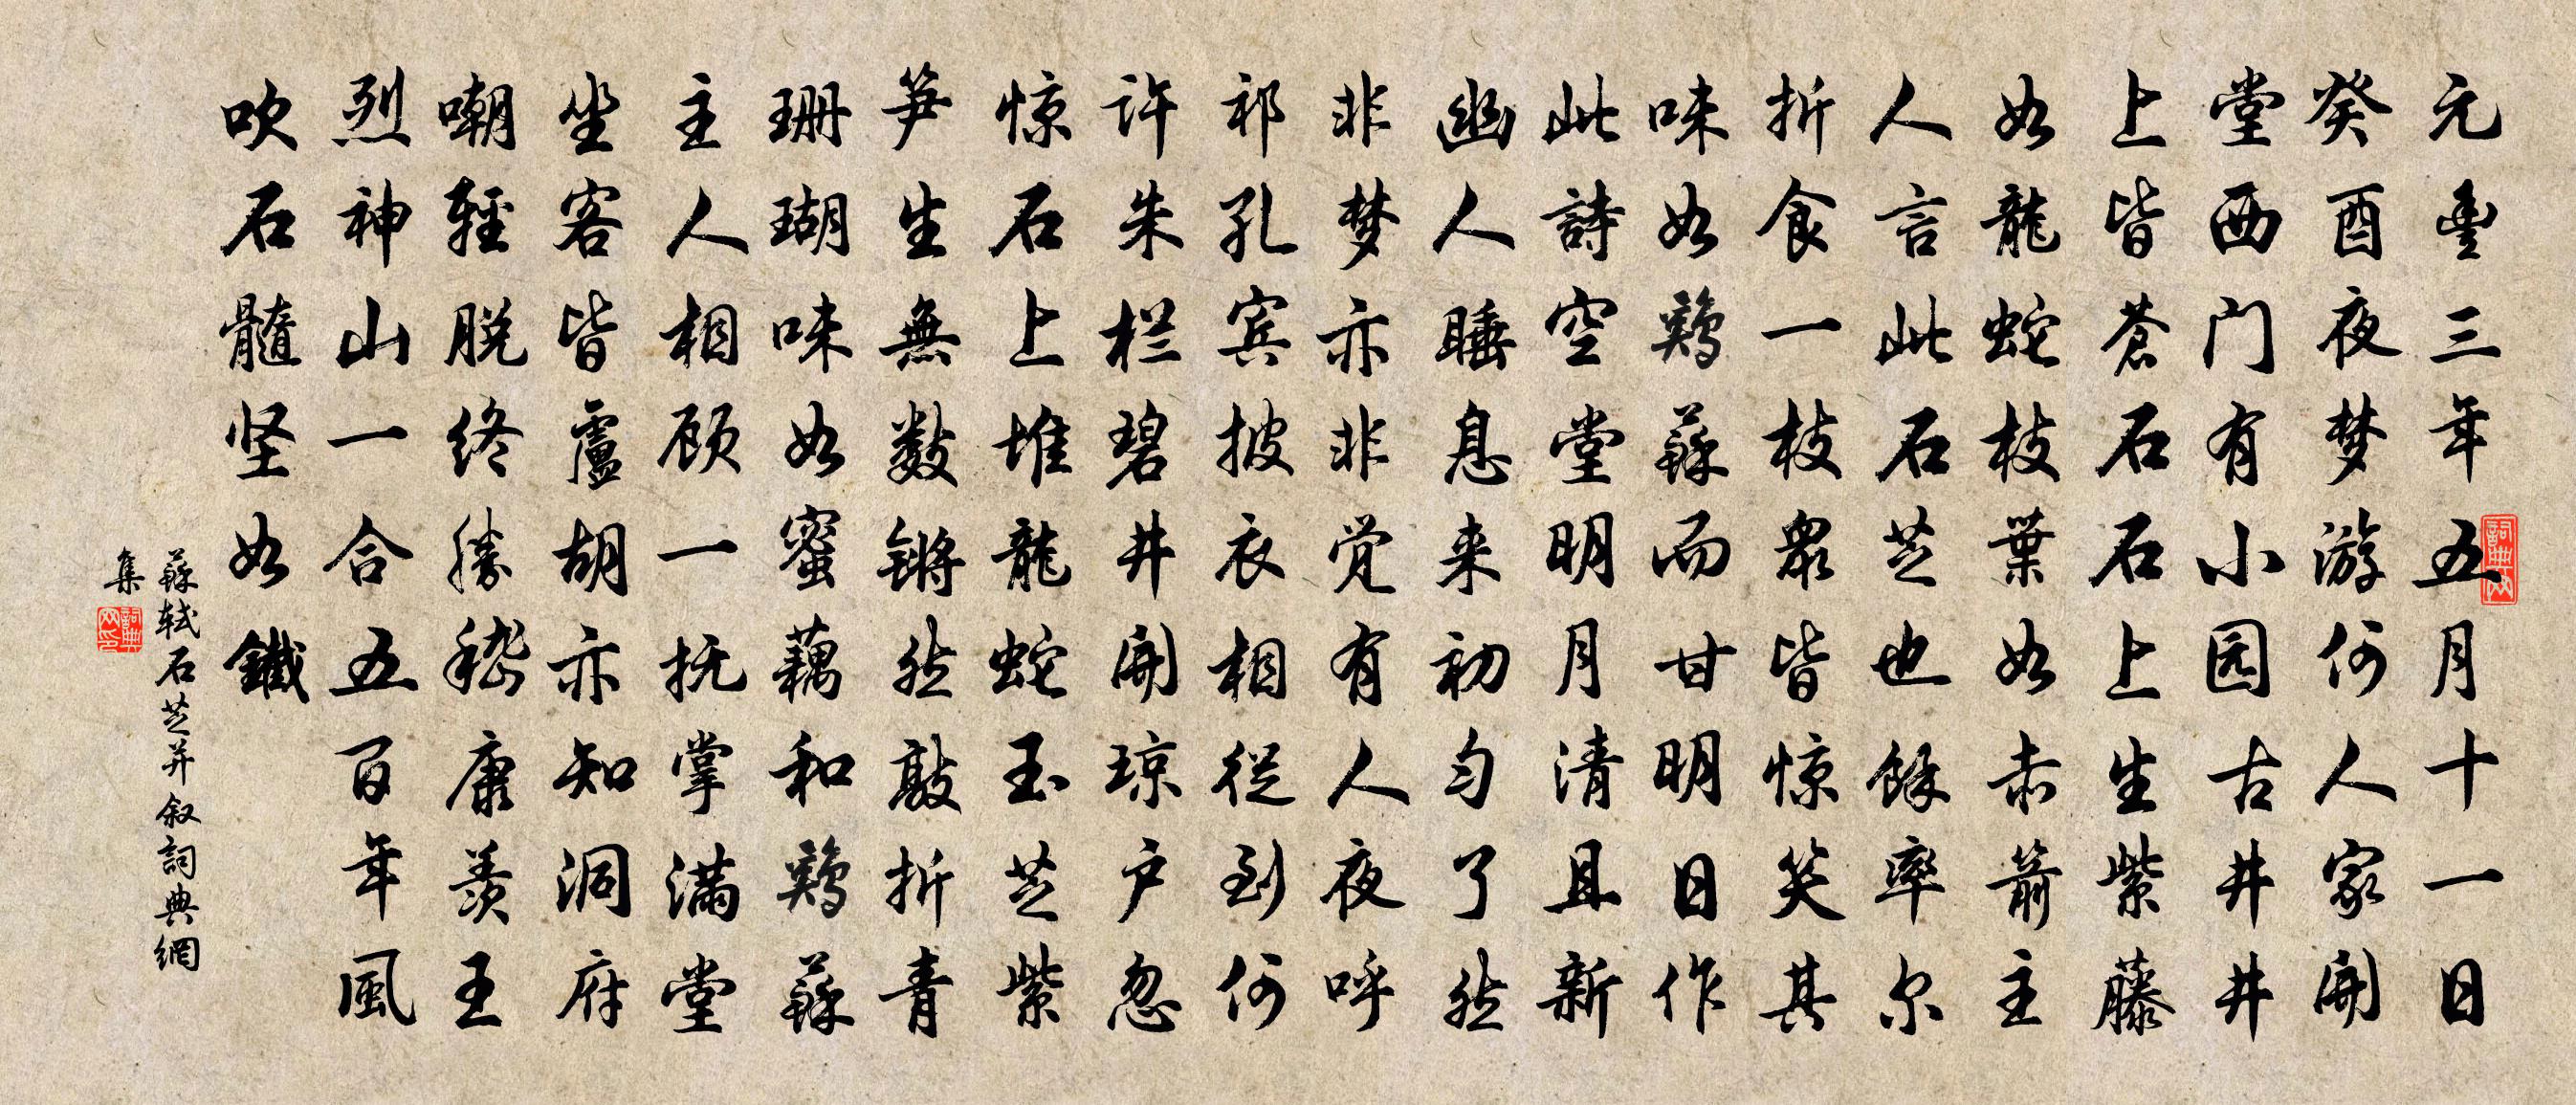 元豊三年五月十一日
癸酉夜梦游何人家開
堂西门有小园古井井
上皆蒼石石上生紫藤
如龍蛇枝葉如赤箭主
人言此石芝也餘率尔
折食一枝衆皆惊笑其
味如鶏蘇而甘明日作
此詩空堂明月清且新
幽人睡息来初匀了然
非梦亦非觉有人夜呼
祁孔宾披衣相從到何
许朱栏碧井開琼户忽
惊石上堆龍蛇玉芝紫
笋生無数锵然敲折青
珊瑚味如蜜藕和鶏蘇
主人相顾一抚掌满堂
坐客皆盧胡亦知洞府
嘲輕脱终勝嵇康羡王
烈神山一合五百年風
吹石髓坚如鐵
蘇轼石芝并叙詞典網
集
詞典网
詞典网印